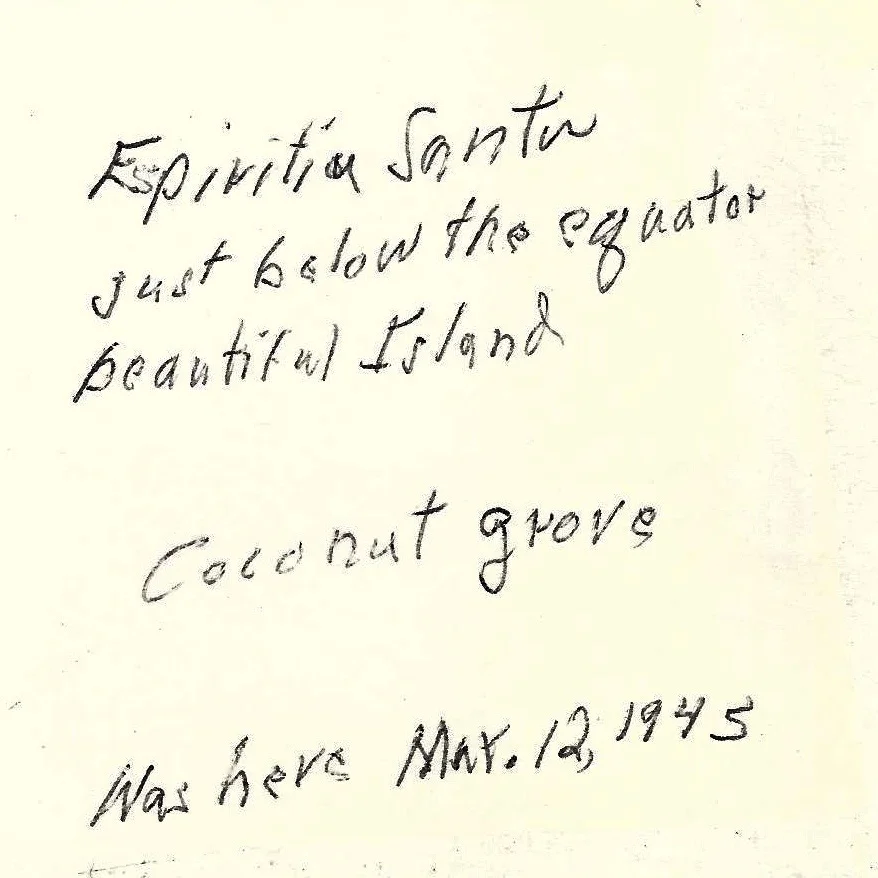 Espiritia Santu
just below the equator
beautiful Island
Coconut grove
Was here Mar. 12, 1945